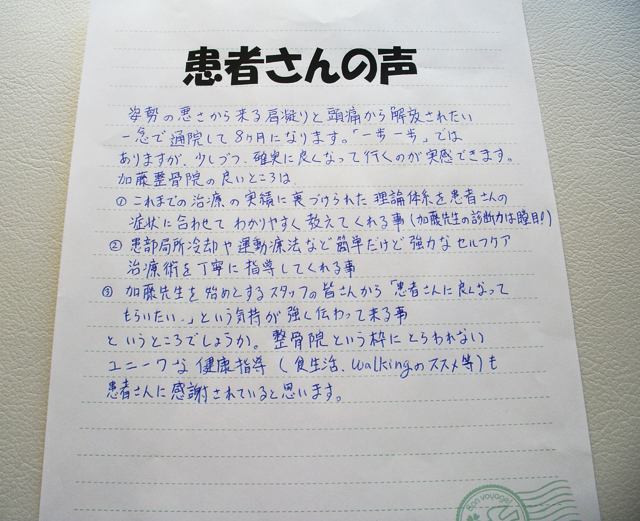 患者さんの声
姿勢の悪さから来る肩凝りと頭痛から解放されたい
一念で通院して8ヶ月になります。「一歩一歩」では
ありますが、少しづつ、確実に良くなって行くのが実感できます。
加藤整骨院の良いところは、
① これまでの治療の実績に裏づけられた理論体系を患者さんの
症状に合わせてわかりやすく教えてくれる事(加藤先生の診断力は瞠目!)
② 患部局所冷却や運動療法など簡単だけど強力なセルフケア
治療術を丁寧に指導してくれる事
③ 加藤先生を始めとするスタッフの皆さんから「患者さんに良くなって
もらいたい。」という気持が強く伝わって来る事
というところでしょうか。整骨院という枠にとらわれない
ユニークな健康指導(食生活、walkingのススメ等)も
患者さんに感謝されていると思います。
Bon voyage!